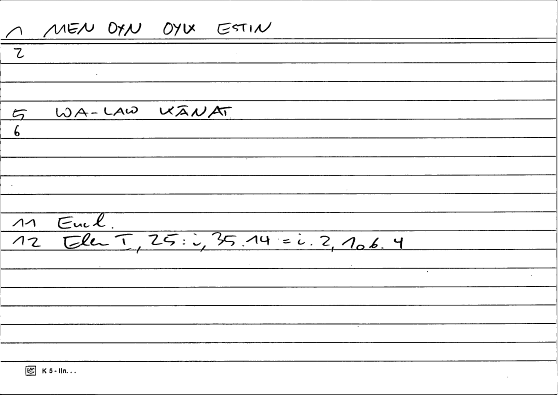 1 MEN OYN OYK ESTIN
2
5 WA-LAW KĀNAT
6
11 Eucl.
12 Elem I, 25: i, 35.14 = i. 2, 106. 4
K 5 - lin...